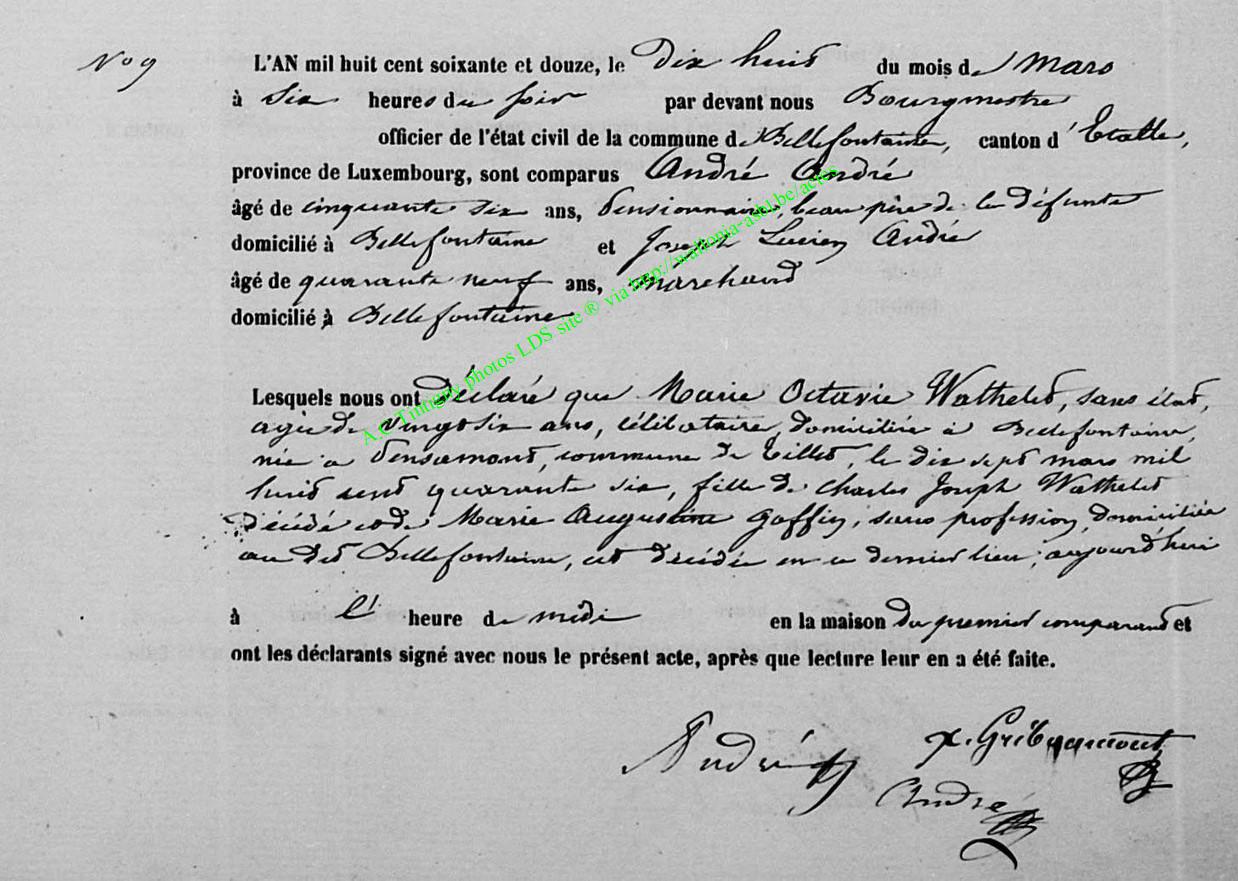 No 9
L'AN mil huit cent soixante et douze, le Dix huit du mois de Mars
à Six heures du soir par devant nous Bourgmestre
officier de l'état civil de la commune de Bellefontaine, canton d'Etalle,
province de Luxembourg, sont comparus André André
âgé de cinquante six ans, Pensionnaire, beau père de la défunte
domicilié à Bellefontaine et Joseph Lucien André
âgé de quarante neuf ans, Marchand
domicilié à Bellefontaine
A.C Tintigny photos LDS site ® via http://wallonia-asbl.be/actes
Lesquels nous ont Déclaré que Marie Octavie Wathelet, sans état,
agée de vingt six ans, Célibataire, domiciliée à Bellefontaine,
née a Pensamont, commune de Tillet, le dix sept mars mil
huit cent quarante six, fille de Charles Joseph Wathelet
décédé et de Marie Augustine Goffin, sans profession, domiciliée
au dit Bellefontaine, est décédée en ce dernier lieu, aujourd'hui
à l' heure de midi en la maison du premier comparant et
ont les déclarants signé avec nous le présent acte, après que lecture leur en a été faite.
André
André